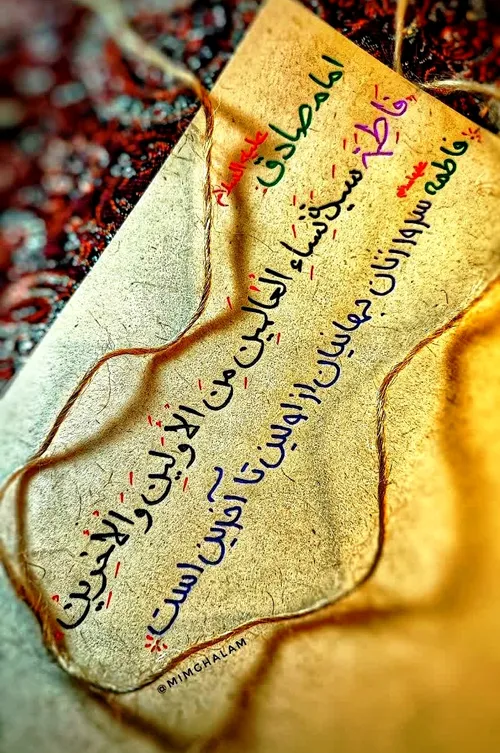 امام صادق علیه‌السلام
فاطِمَة سیدة نِساءِ العالَمینَ مِنَ الأوَّلینَ وَالآخَرینَ
فاطمه علیها سرور زنان جهانیان از اولین تا آخرین است
@MIMGHALAM